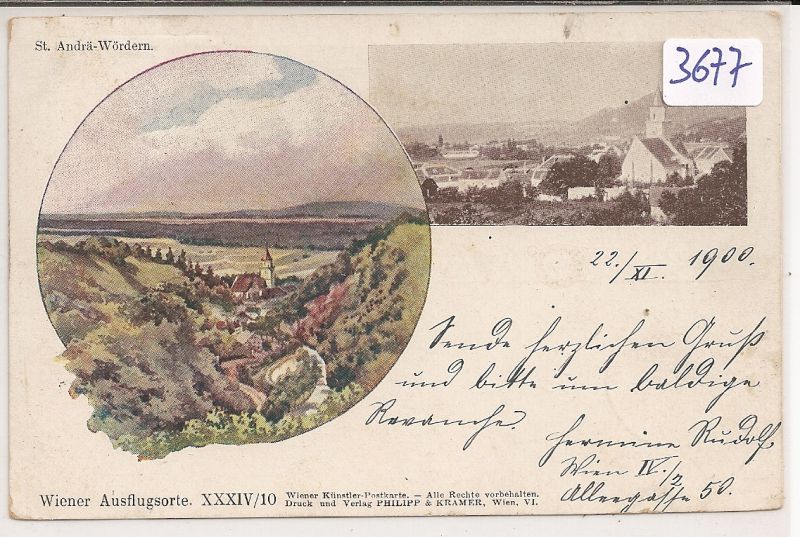 St. Andrä-Wördern.
3677
22./XI. 1900.
Sende herzlichen Gruß
und bitte um baldige
Revanche.
Hermine Rudolf
Wien IV./2
Alleegasse 50.
Wiener Ausflugsorte. XXXIV/10
Wiener Künstler-Postkarte. — Alle Rechte vorbehalten.
Druck und Verlag PHILIPP & KRAMER, Wien, VI.